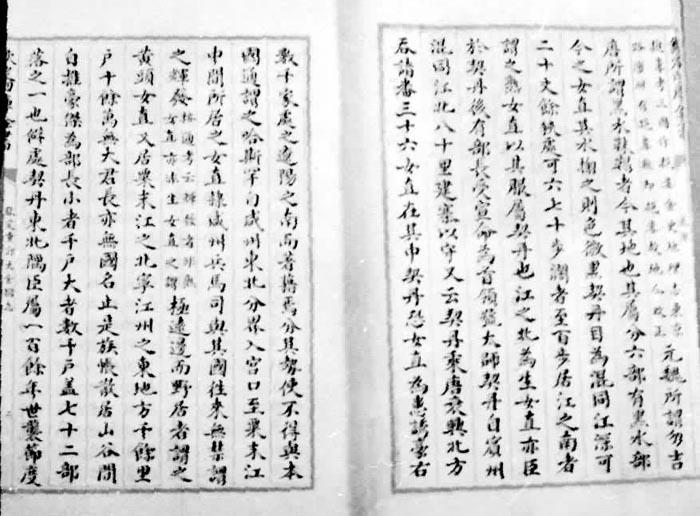 元魏所謂勿吉
唐所謂黑水靺鞨者今其地也其屬分六部有黑水部
今之女直其水掬之則色微黑契丹目為混同江深可
二十丈餘狹處可六七十步濶者至百步居江之南者
謂之熟女直以其服屬契丹也江之北為生女直亦臣
於契丹後有部長受宣命為首領號太師契丹自賓州
混同江北八十里建寨以守又云契丹乘唐衰興北方
吞諸番三十六女直在其中契丹恐女直為患誘豪右
數千家處之遼陽之南而著籍焉分其勢使不得與本
國通謂之哈斯罕自咸州東北分界入宫口至粟末江
中間所居之女直隸咸州兵馬司與其國往來無禁謂
之輝發 極遠邊而野居者謂之
黄頭女直又居粟末江之北寧江州之東地方千餘里
户十餘萬無大君長亦無國名止是族帳散居山谷間
自推豪傑為部長小者千户大者數千户盖七十二部
落之一也僻處契丹東北隅臣屬一百餘年世襲節度